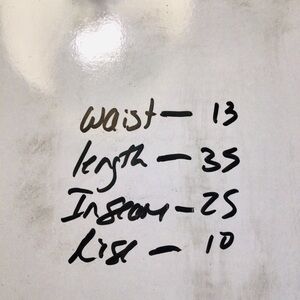 waist — 13
length — 35
Inseam — 25
Rise — 10